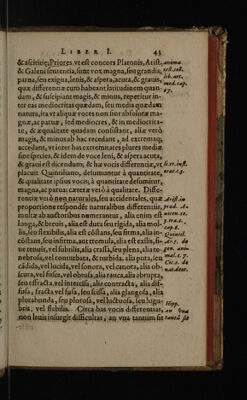 LIBER I. 43
& ascititię, Priores, vt est concors Platonis, Arist.
& Galeni sententia, sunt vox magna, seu grandis,
parua, seu exigua, lenis, & aspera, acuta, & grauis,
quæ differentiæ cum habeant latitudinem quan
dam, & suscipiant magis, & minus, reperitur in-
ter eas mediocritas quædam, seu media quædam
natura, ita vt aliquæ voces non sint absolutæ ma-
gnæ, ac paruæ, sed mediocres, & in mediocrita-
te, & æqualitate quadam consistant, aliæ verò
magis, & minus ab hac recedant, ad extremaq;
accedant, vt inter has extremitates plures mediæ
sint species, & idem de voce leni, & aspera acuta,
& graui est dicendum, & hæ vocis differentiæ, vt
placuit Quintiliano, desumuntur à quantitate,
& qualitate ipsius vocis; à quantitate desumitur,
magna, ac parua: cæteræ verò à qualitate. Diffe-
rentiæ verò non naturales, seu accidentales, quæ
proportione respondēt naturalibus differentiis,
multæ ab auctoribus nominantur, alia enim est
longa, & breuis, alia est dura seu rigida, alia mol-
lis, seu flexibilis, alia est cōstans, seu firma, alia in-
cōstans, seu infirma, aut tremula, alia est exilis, si-
ue tenuis, vel subtilis, alia crassa, seu plena, alia te-
nebrosa, vel connubata, & turbida, alia pura, seu
cādida, vel lucida, vel sonora, vel canora, alia ob-
scura, vel fusca, vel obtusa, alia rauca, alia abrupta,
seu effracta, vel intercisa, alia contracta, alia dif-
fusa, fracta vel fusa, seu scissa, alia glangosa, alia
plorabunda, seu plorosa, vel luctuosa, seu lugu-
bris, vel flebilis. Circa has vocis differentias,
non leuis insurgit difficultas, an vna tantum sit
anima
med. cap.
17.
li. 11. inst.
orat. c. 3.
Arist. in
cap. 6.
Quintil.
gen. ani-
mal. 5. 7.
Cic. 2. de
nat. deor.
Hipp.
an vna
tantū sit